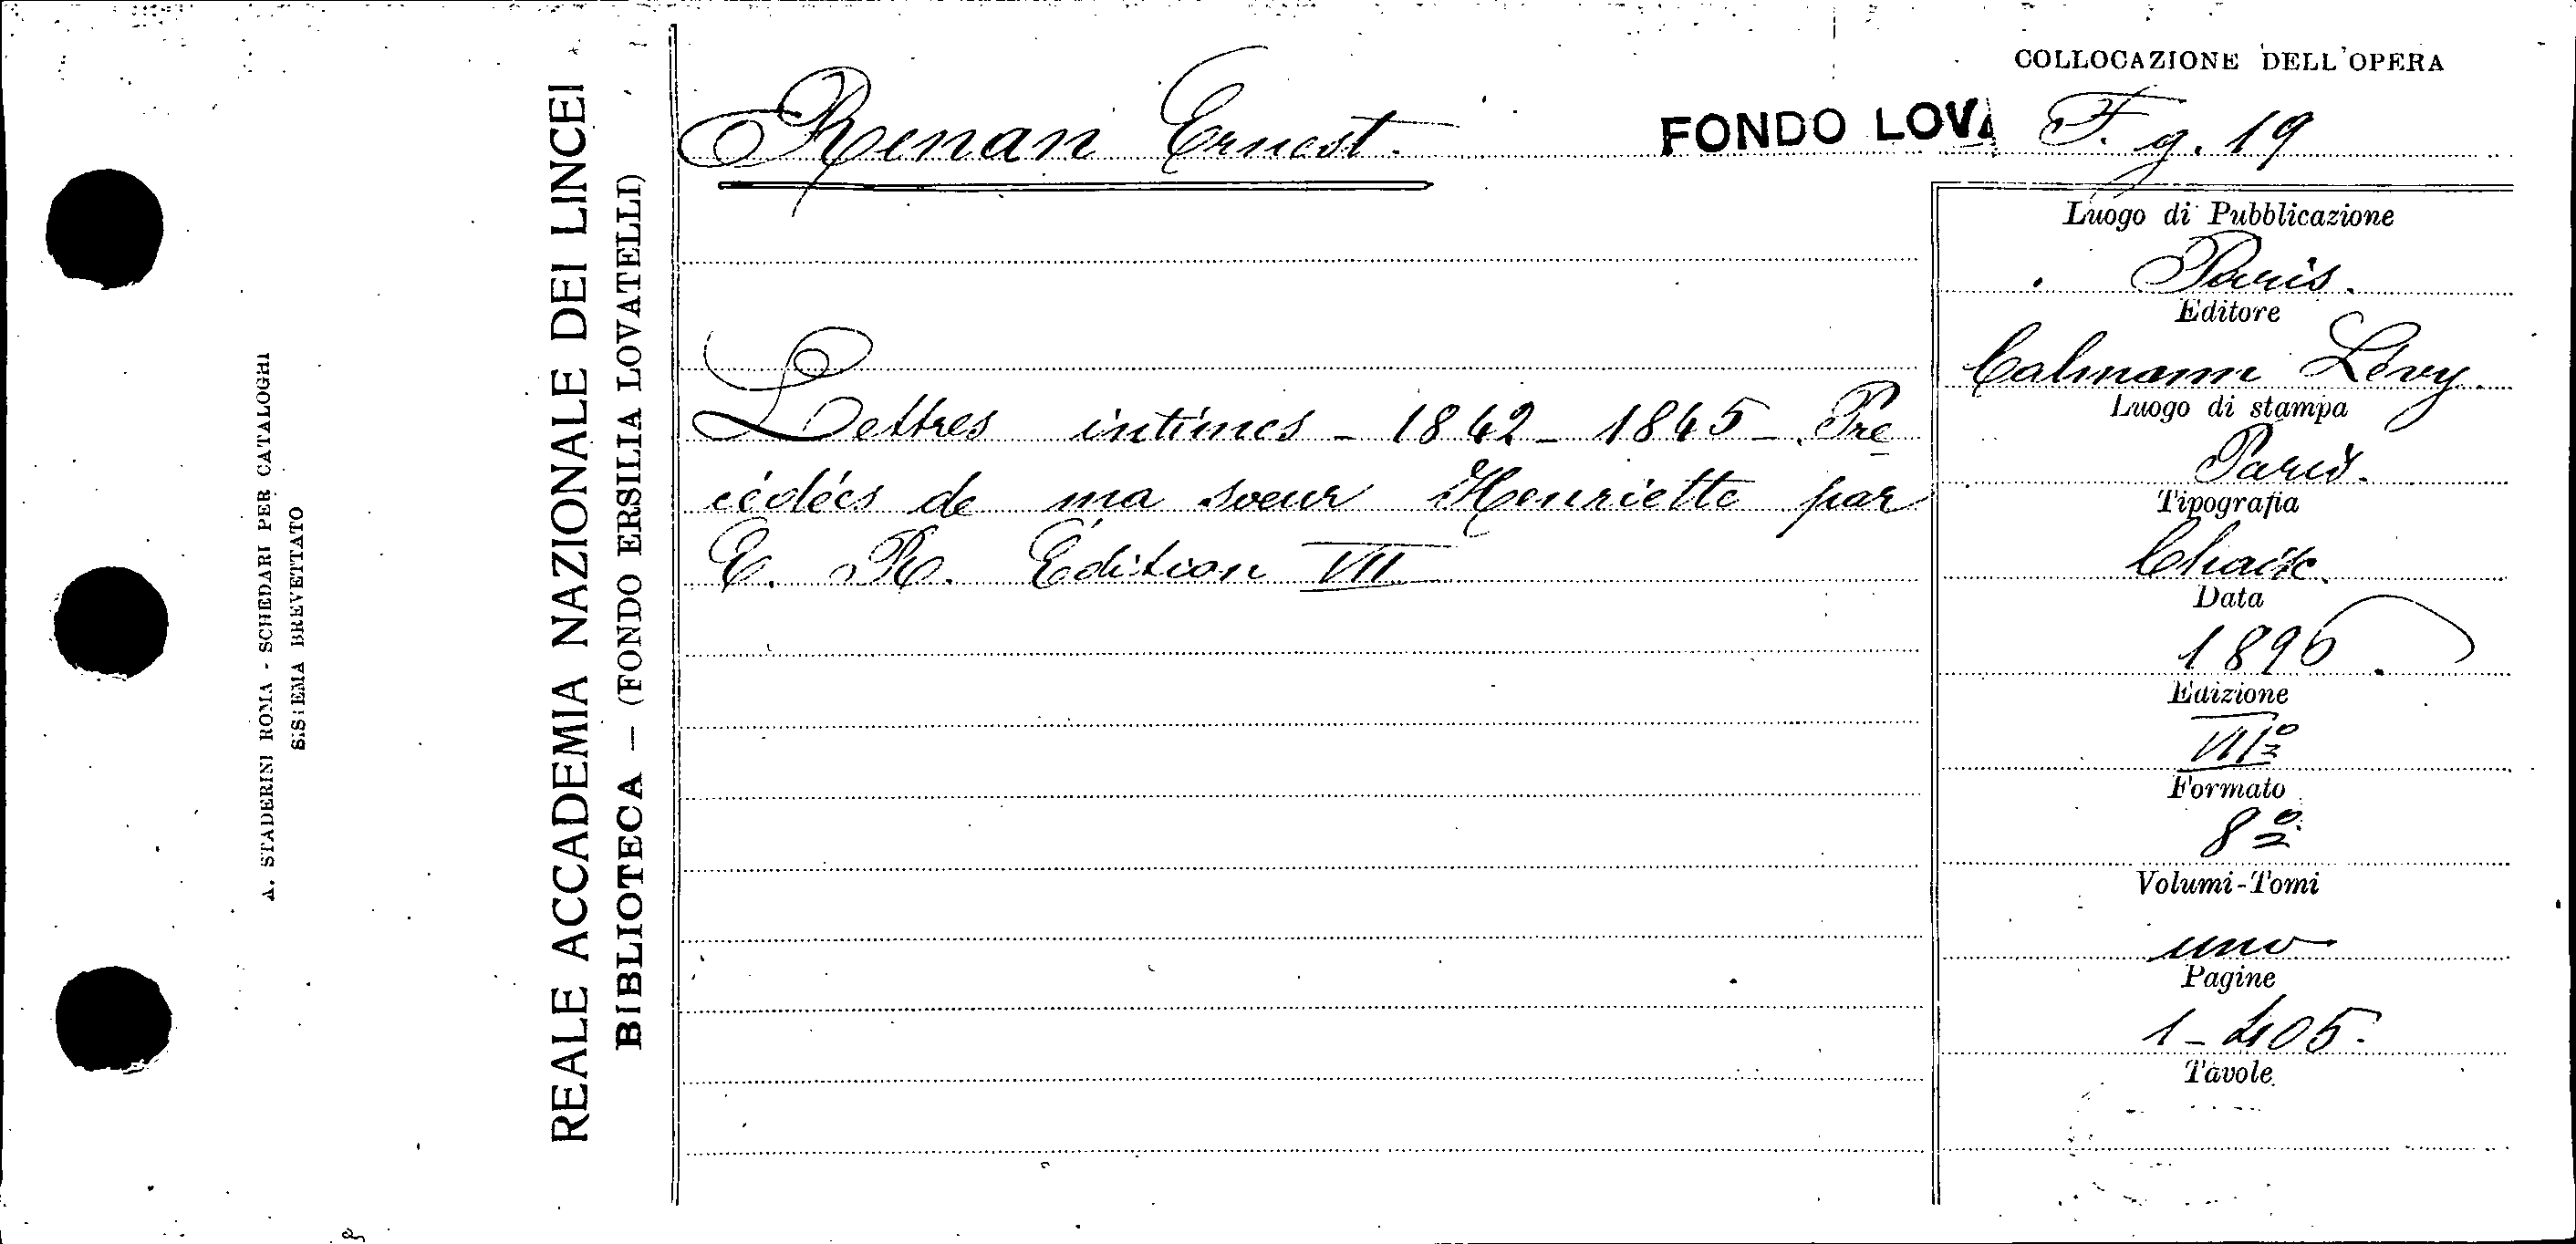 A. STADERINI ROMA - SCHEDARI PER CATALOGHI
SISTEMA BREVETTATO
REALE ACCADEMIA NAZIONALE DEI LINCEI
BIBLIOTECA — (FONDO ERSILIA LOVATELLI)
Renan Ernest.
FONDO LOVA
Lettres intimes - 1842 - 1845 - Pre
cédées de ma soeur Henriette par
E. R. Edition VII
COLLOCAZIONE DELL'OPERA
F. g. 19
Luogo di Pubblicazione
Paris.
Editore
Calmann Lévy.
Luogo di stampa
Paris.
Tipografia
Chaix.
Data
1896.
Edizione
VIIº
Formato
8º
Volumi-Tomi
uno
Pagine
1-405.
Tavole